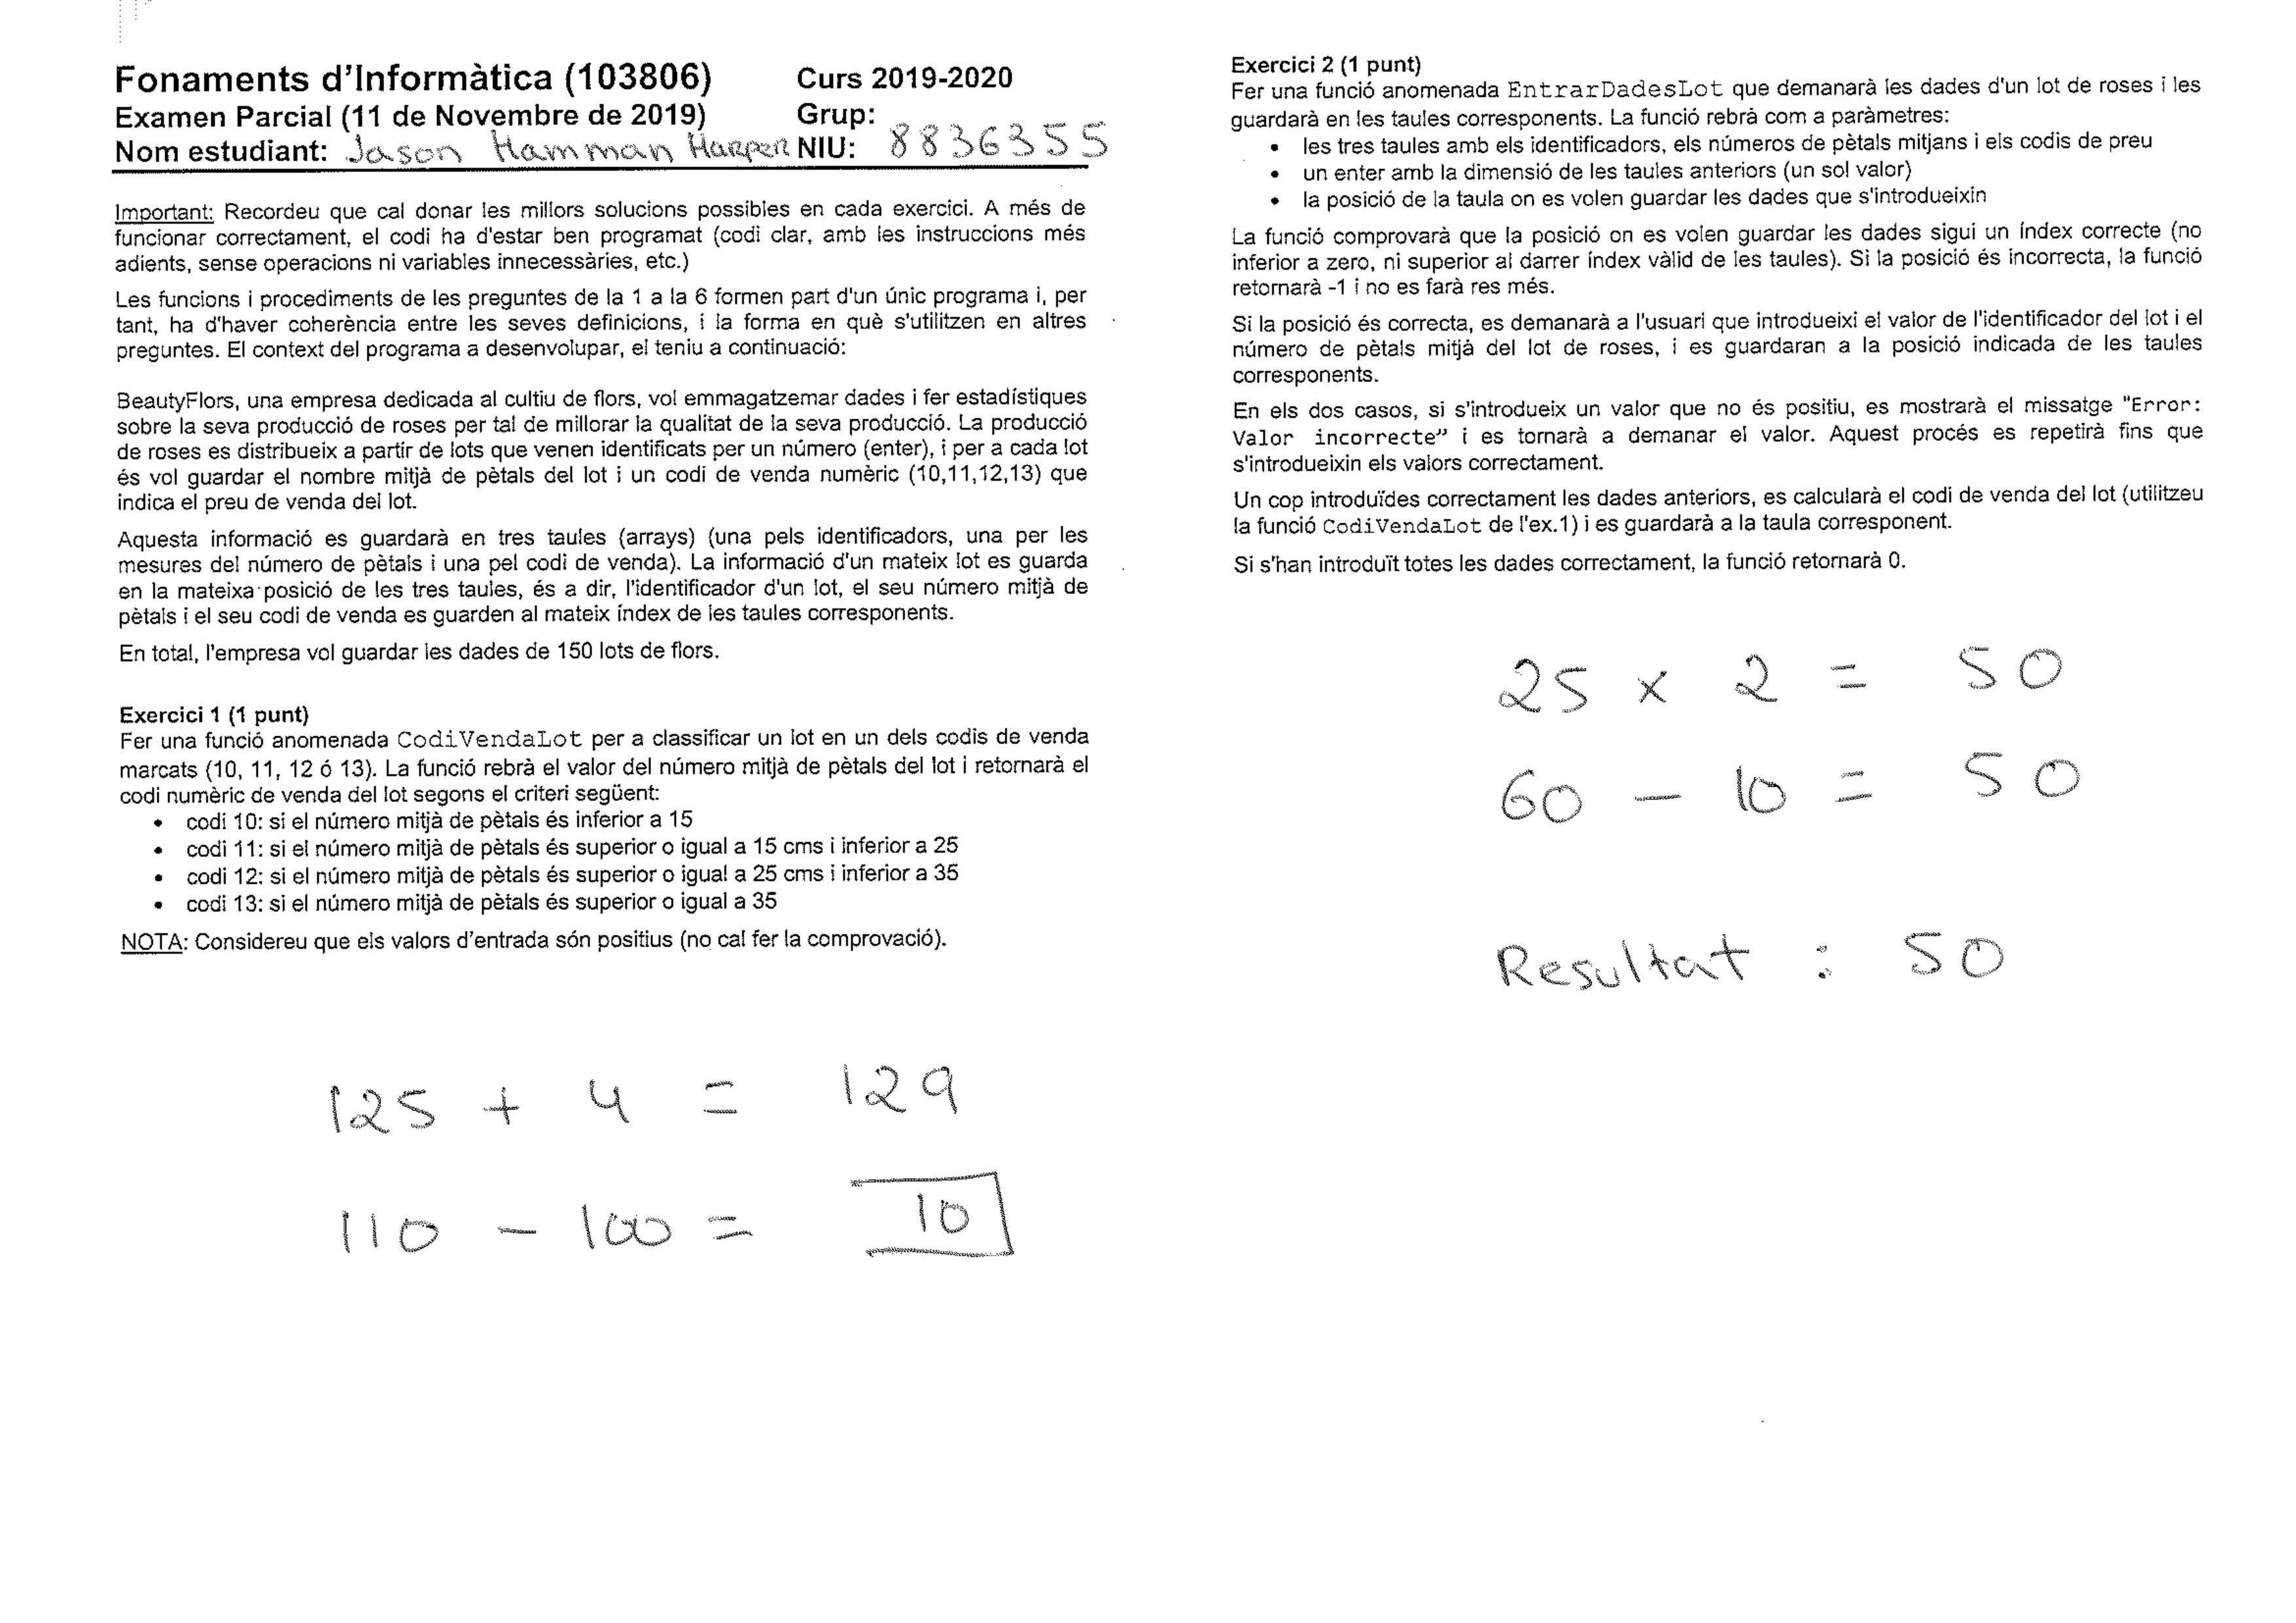 Fonaments d'Informàtica (103806) Curs 2019-2020
Examen Parcial (11 de Novembre de 2019) Grup:
Nom estudiant: Jason Hamman Harper NIU: 8836355
Important: Recordeu que cal donar les millors solucions possibles en cada exercici. A més de
funcionar correctament, el codi ha d'estar ben programat (codi clar, amb les instruccions més
adients, sense operacions ni variables innecessàries, etc.)
Les funcions i procediments de les preguntes de la 1 a la 6 formen part d'un únic programa i, per
tant, ha d'haver coherència entre les seves definicions, i la forma en què s'utilitzen en altres
preguntes. El context del programa a desenvolupar, el teniu a continuació:
BeautyFlors, una empresa dedicada al cultiu de flors, vol emmagatzemar dades i fer estadístiques
sobre la seva producció de roses per tal de millorar la qualitat de la seva producció. La producció
de roses es distribueix a partir de lots que venen identificats per un número (enter), i per a cada lot
és vol guardar el nombre mitjà de pètals del lot i un codi de venda numèric (10,11,12,13) que
indica el preu de venda del lot.
Aquesta informació es guardarà en tres taules (arrays) (una pels identificadors, una per les
mesures del número de pètals i una pel codi de venda). La informació d'un mateix lot es guarda
en la mateixa posició de les tres taules, és a dir, l'identificador d'un lot, el seu número mitjà de
pètals i el seu codi de venda es guarden al mateix índex de les taules corresponents.
En total, l'empresa vol guardar les dades de 150 lots de flors.
Exercici 1 (1 punt)
Fer una funció anomenada CodiVendaLot per a classificar un lot en un dels codis de venda
marcats (10, 11, 12 ó 13). La funció rebrà el valor del número mitjà de pètals del lot i retornarà el
codi numèric de venda del lot segons el criteri següent:
• codi 10: si el número mitjà de pètals és inferior a 15
• codi 11: si el número mitjà de pètals és superior o igual a 15 cms i inferior a 25
• codi 12: si el número mitjà de pètals és superior o igual a 25 cms i inferior a 35
• codi 13: si el número mitjà de pètals és superior o igual a 35
NOTA: Considereu que els valors d'entrada són positius (no cal fer la comprovació).
125 + 4 = 129
110 - 100 = 10
Exercici 2 (1 punt)
Fer una funció anomenada EntrarDadesLot que demanarà les dades d'un lot de roses i les
guardarà en les taules corresponents. La funció rebrà com a paràmetres:
• les tres taules amb els identificadors, els números de pètals mitjans i els codis de preu
• un enter amb la dimensió de les taules anteriors (un sol valor)
• la posició de la taula on es volen guardar les dades que s'introdueixin
La funció comprovarà que la posició on es volen guardar les dades sigui un índex correcte (no
inferior a zero, ni superior al darrer índex vàlid de les taules). Si la posició és incorrecta, la funció
retornarà -1 i no es farà res més.
Si la posició és correcta, es demanarà a l'usuari que introdueixi el valor de l'identificador del lot i el
número de pètals mitjà del lot de roses, i es guardaran a la posició indicada de les taules
corresponents.
En els dos casos, si s'introdueix un valor que no és positiu, es mostrarà el missatge "Error:
Valor incorrecte" i es tornarà a demanar el valor. Aquest procés es repetirà fins que
s'introdueixin els valors correctament.
Un cop introduïdes correctament les dades anteriors, es calcularà el codi de venda del lot (utilitzeu
la funció CodiVendaLot de l'ex.1) i es guardarà a la taula corresponent.
Si s'han introduït totes les dades correctament, la funció retornarà 0.
25 x 2 = 50
60 - 10 = 50
Resultat : 50